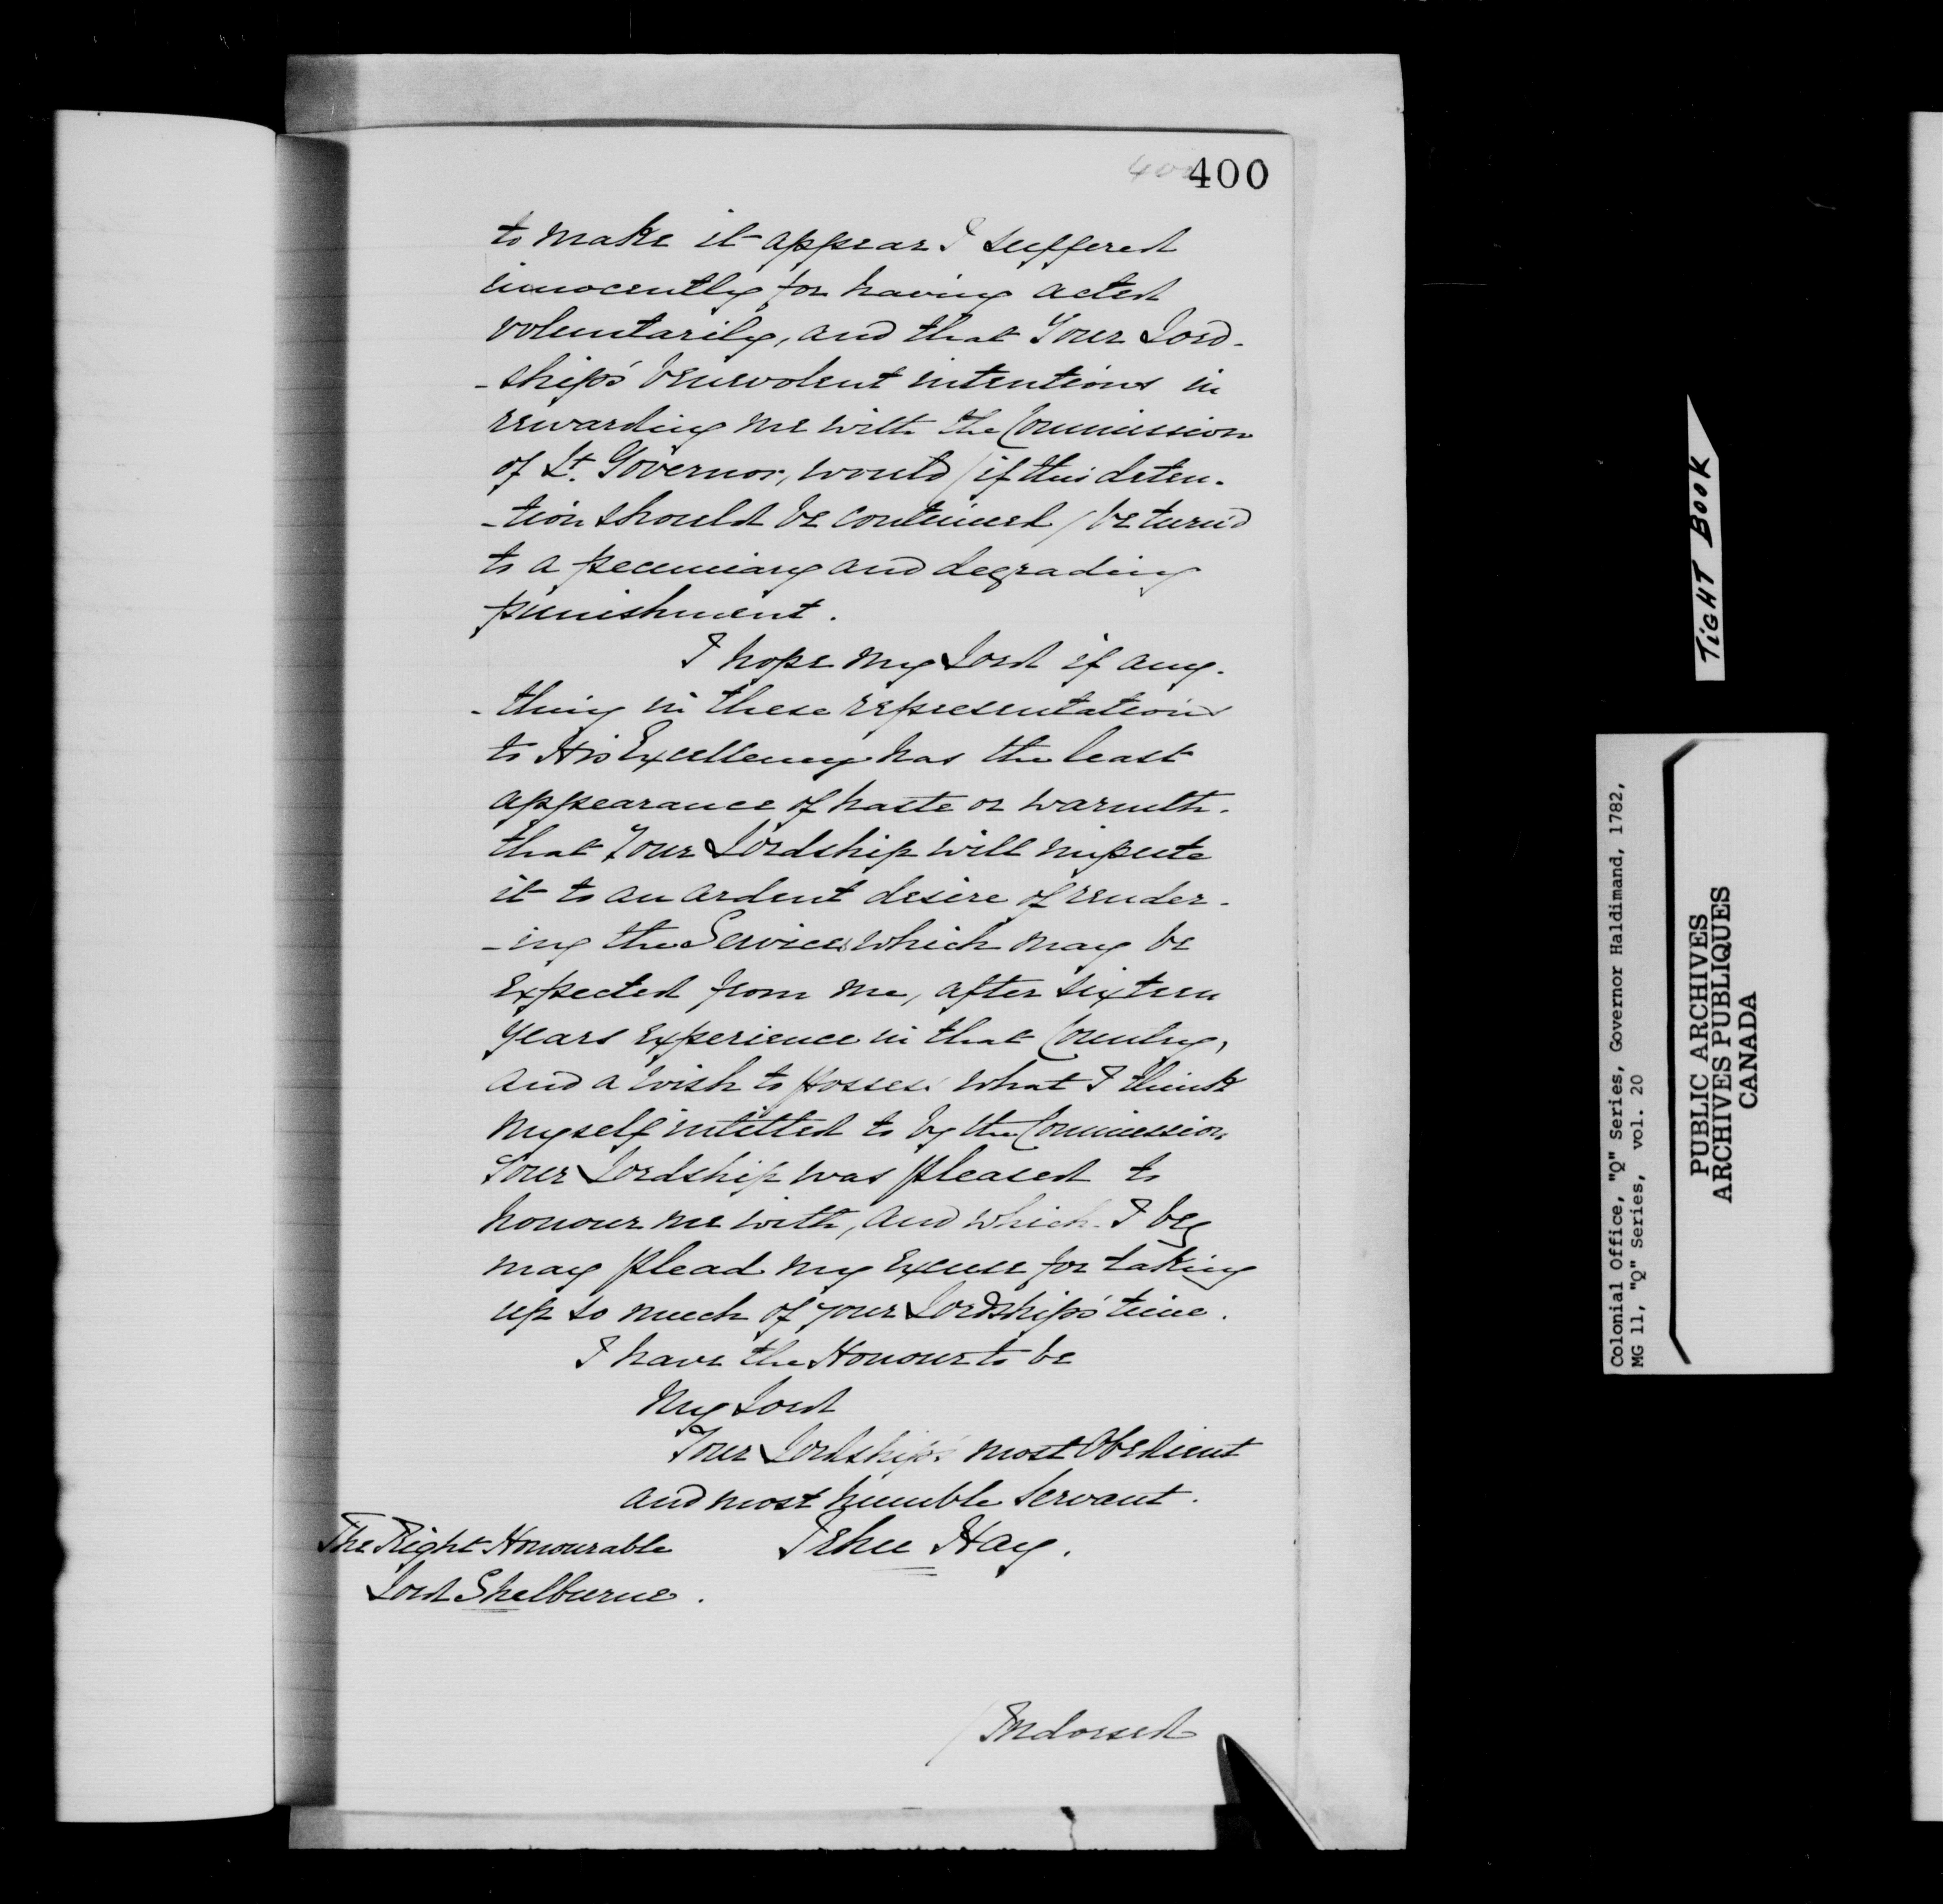 400
400
to make it appear I suffered
innocently for having acted
voluntarily, and that Your Lord-
-ship's benevolent intentions in
rewarding me with the Commission
of Lt. Governor, would / if this deten-
-tion should be continued / be turn'd
to a pecuniary and degrading
punishment.
I hope my Lord if any-
-thing in these representations
to His Excellency has the least
appearance of haste or warmth.
that Your Lordship will impute
it to an ardent desire of render-
-ing the Services which may be
expected from me, after sixteen
years experience in that Country,
and a wish to possess what I think
myself intitled to by the Commission
Your Lordship was pleased to
honour me with, and which I beg
may plead my excuse for taking
up so much of your Lordship's time.
I have the Honour to be
My Lord
Your Lordship's most Obedient
and most humble Servant.
The Right Honourable Jehu Hay.
Lord Shelburne.
/Indorsed
TIGHT BOOK
Colonial Office, "Q" Series, Governor Haldimand, 1782,
MG 11, "Q" Series, vol. 20
PUBLIC ARCHIVES
ARCHIVES PUBLIQUES
CANADA